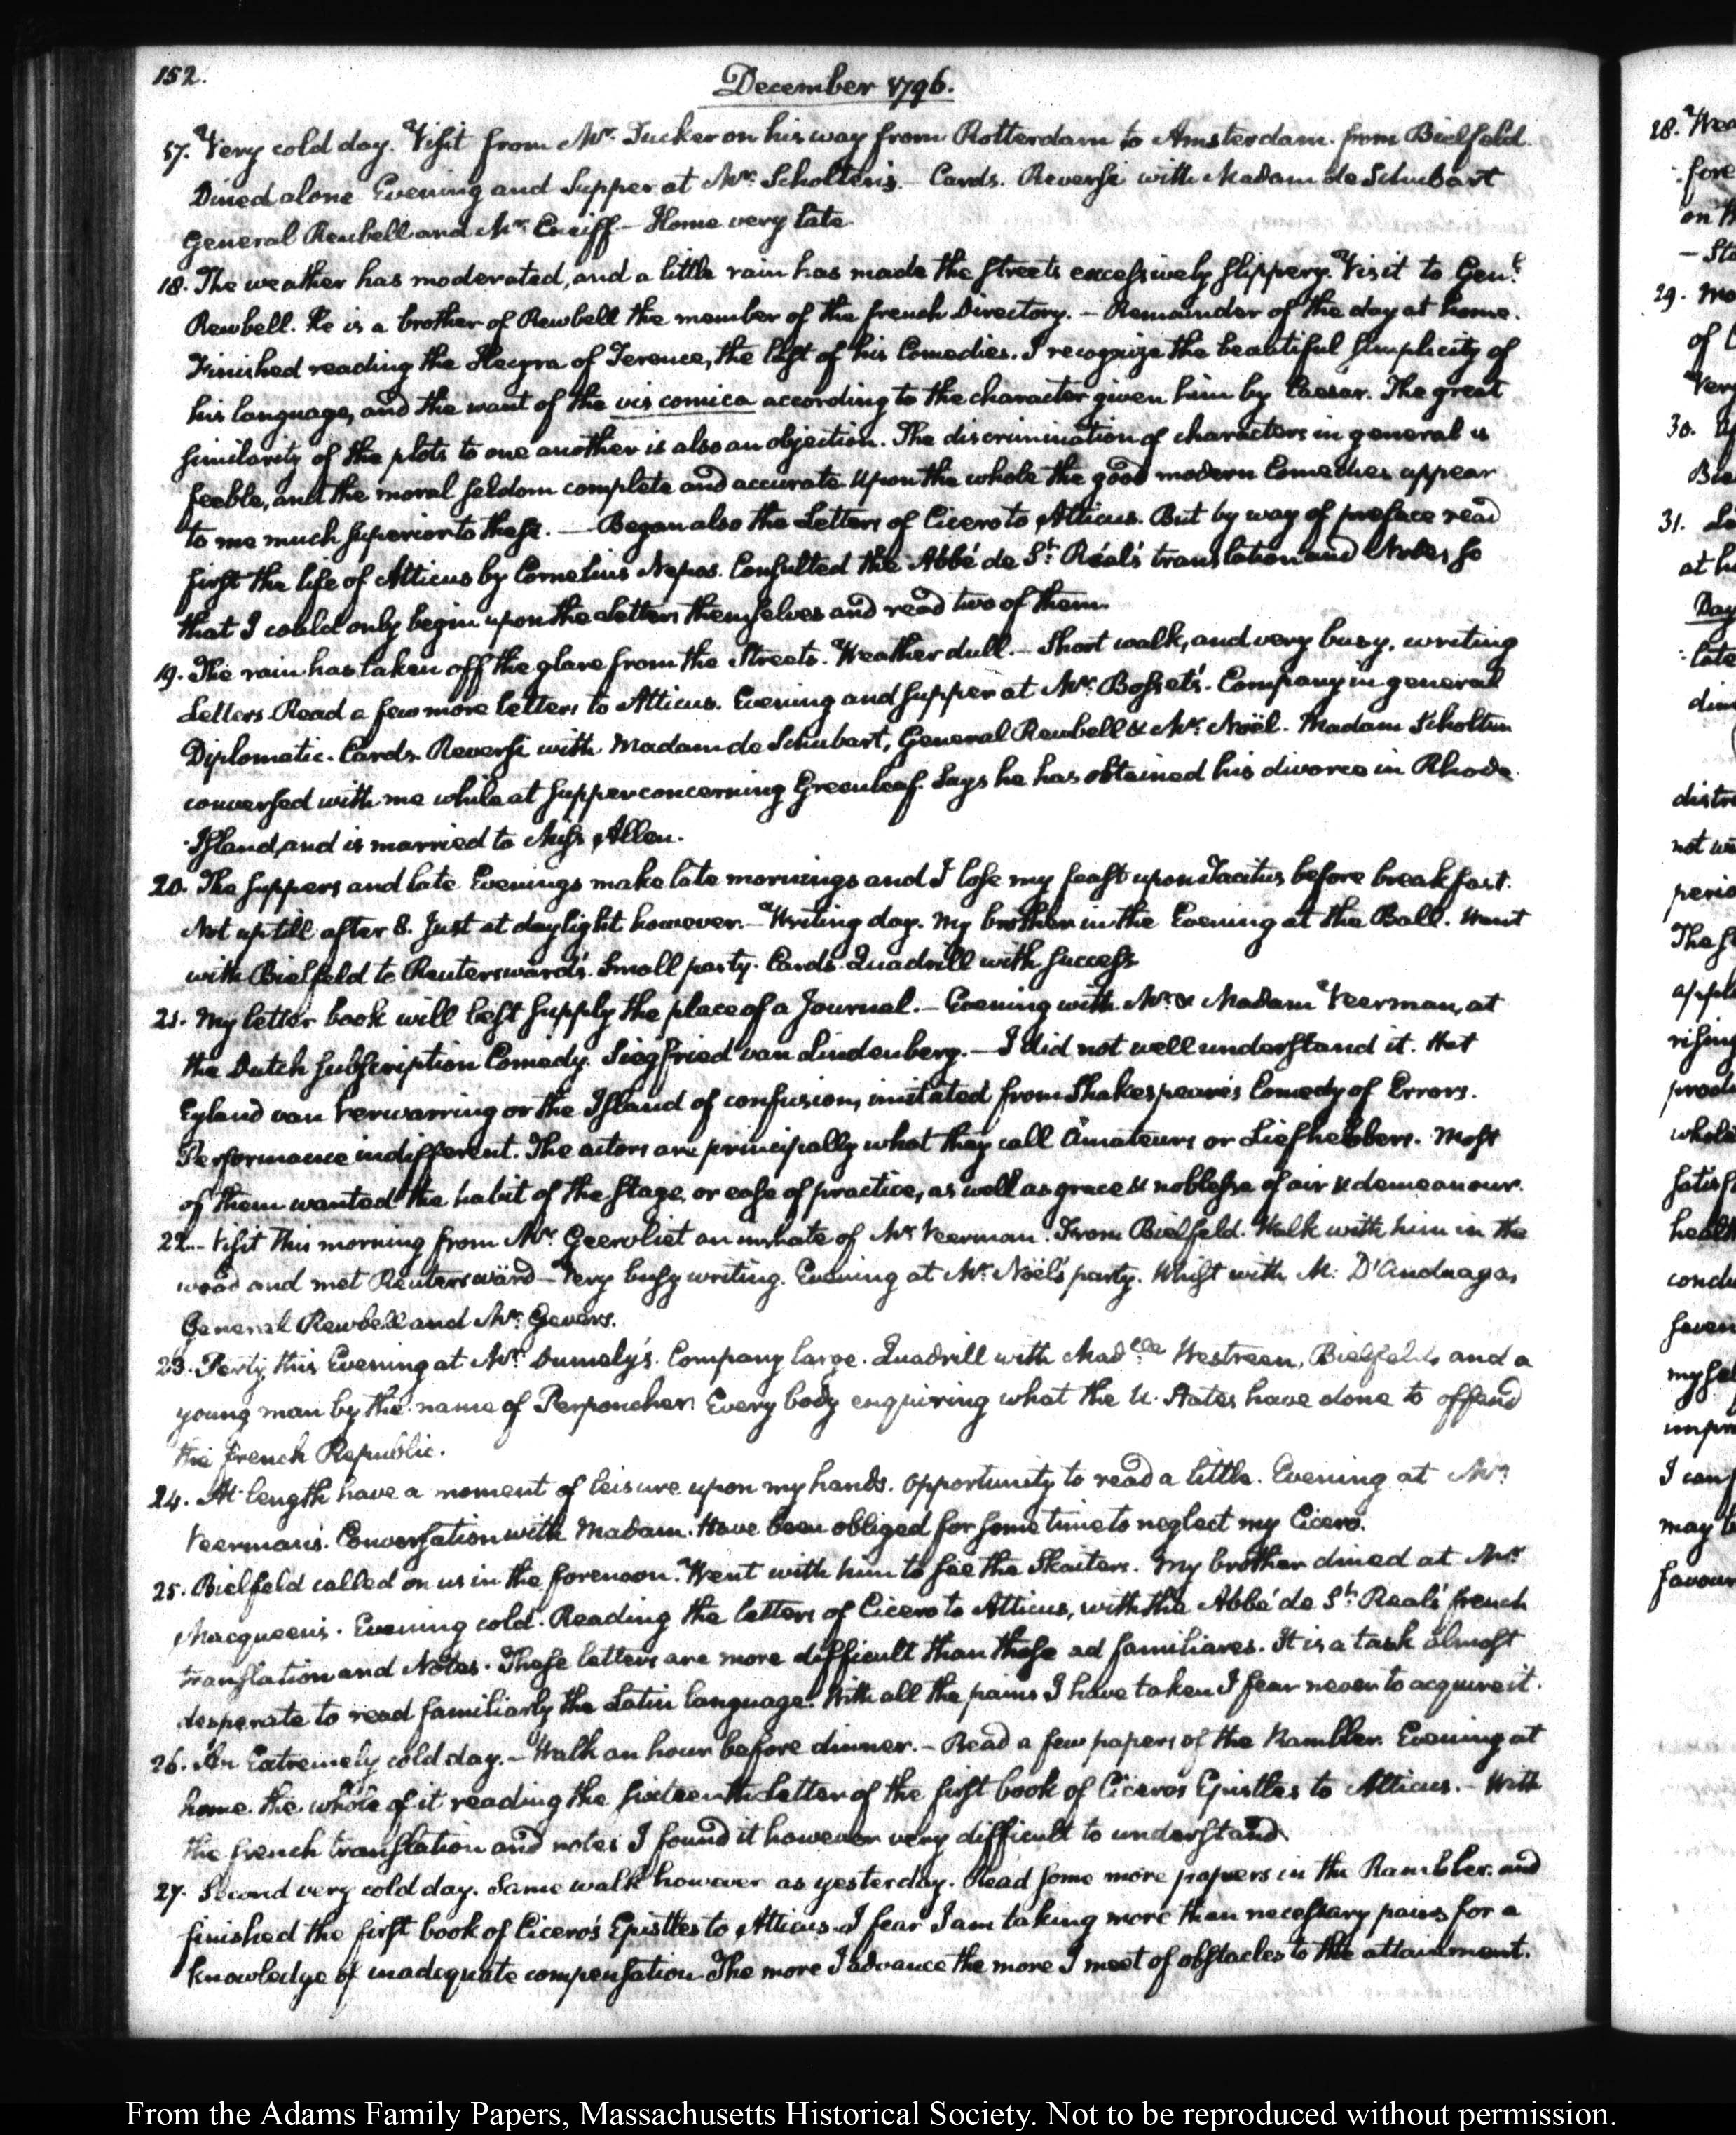 152.
December 1796.
17. Very cold day. Visit from Mr. Tucker on his way from Rotterdam to Amsterdam. from Bielfeld.
Dined alone Evening and Supper at Mr. Scholten's.— Cards. Reversi with Madam de Schubart
General Reubell and Mr. — Home very late.
18. The weather has moderated, and a little rain has made the streets excessively slippery. Visit to Genl.
Rewbell. He is a brother of Rewbell the member of the french Directory. — Remainder of the day at home.
Finished reading the Hecyra of Terence, the last of his Comedies. I recognize the beautiful simplicity of
his language, and the want of the vis comica according to the character given him by Caesar. The great
similarity of the plots to one another is also an objection. The discrimination of characters in general is
feeble, and the moral seldom complete and accurate. Upon the whole the good modern Comedies appear
to me much superior to these. — Began also the Letters of Cicero to Atticus. But by way of preface read
first the life of Atticus by Cornelius Nepos. Consulted the Abbé de St. Réal's translation and Notes so
that I could only begin upon the Letters themselves and read two of them.
19. The rain has taken off the glare from the Streets. Weather dull.— Short walk, and very busy, writing
Letters. Read a few more letters to Atticus. Evening and supper at Mr. Bosset's. Company in general
Diplomatic. Cards. Reversi with Madam de Schubart, General Reubell & Mr. Noël. Madam Scholten
conversed with me while at supper concerning Greenleaf. Says he has obtained his divorce in Rhode
Island, and is married to Miss Allen.
20. The suppers and late Evenings make late mornings and I lose my feast upon Tacitus before breakfast.
Not up till after 8. Just at daylight however.— Writing day. My brother in the Evening at the Ball. Went
with Bielfeld to Reutersward's. Small party. Cards. Quadrill with success
21. My letter book will best supply the place of a Journal.— Evening with Mr. & Madam Veerman, at
the Dutch subscription Comedy. Siegfried van Lindenberg.— I did not well understand it. Het
Eyland van Verwarring or the Island of confusion, imitated from Shakespeare's Comedy of Errors.
Performance indifferent. The actors are principally what they call Amateurs or Liefhebbers. Most
of them wanted the habit of the stage, or ease of practice, as well as grace & noblesse of air & demeanour.
22.— Visit this morning from Mr. Geervliet an inmate of Mr. Veerman. From Bielfeld. Walk with him in the
wood and met Reutersward— Very busy writing. Evening at Mr. Noël's party. Whist with M: D'Anduaga,
General Rewbell and Mr. Gevers.
23. Party this Evening at Mr. Dumely's. Company large. Quadrill with Madelle Westreen, Bielfeld, and a
young man by the name of Perponcher. Every body enquiring what the U. States have done to offend
the french Republic.
24. At length have a moment of leisure upon my hands. Opportunity to read a little. Evening at Mr.
Veerman's. Conversation with Madam. Have been obliged for some time to neglect my Cicero.
25. Bielfeld called on us in the forenoon. Went with him to see the Skaiters. My brother dined at Mr.
Macqueen's. Evening cold. Reading the letters of Cicero to Atticus, with the Abbé de St. Real's french
translation and Notes. These letters are more difficult than those ad familiares. It is a task almost
desperate to read familiarly the Latin language. With all the pains I have taken I fear never to acquire it.
26. An Extremely cold day.— Walk an hour before dinner.— Read a few papers of the Rambler. Evening at
home. the whole of it reading the sixteenth Letter of the first book of Ciceros Epistles to Atticus.— With
the french translation and notes I found it however very difficult to understand.
27. Second very cold day. Same walk however as yesterday. Read some more papers in the Rambler. and
finished the first book of Cicero's Epistles to Atticus. I fear I am taking more than necessary pains for a
knowledge of inadequate compensation. The more I advance the more I meet of obstacles to the attainment.
28.
29.
30.
31.
From the Adams Family Papers, Massachusetts Historical Society. Not to be reproduced without permission.